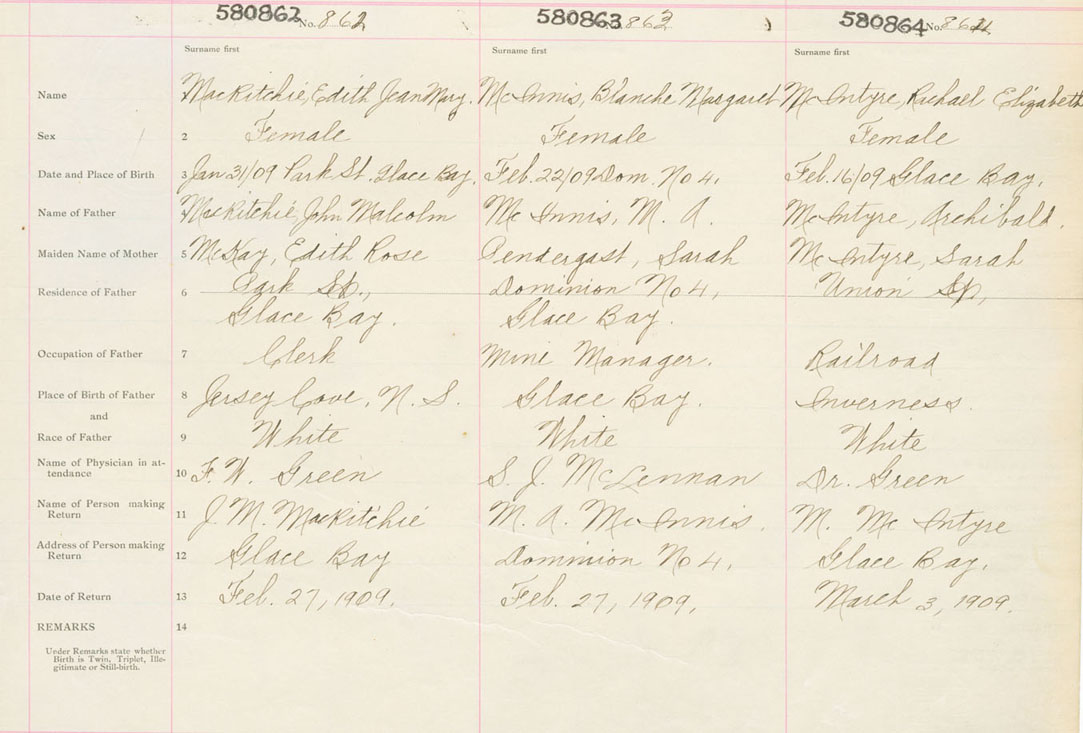 580862 No. 862 580863 No. 863 580864 No. 864
Surname first Surname first Surname first
Name MacRitchie, Edith Jean Mary. McInnis, Blanche Margaret McIntyre, Rachael Elizabeth
Sex 2 Female Female Female
Date and Place of Birth 3 Jan 31/09 Park St. Glace Bay. Feb. 22/09 Dom. No 4. Feb. 16/09 Glace Bay.
Name of Father MacRitchie, John Malcolm McInnis, M. A. McIntyre, Archibald.
Maiden Name of Mother 5 McKay, Edith Rose Pendergast, Sarah McIntyre, Sarah
Residence of Father 6 Park St., Dominion No 4, Union St,
Glace Bay. Glace Bay.
Occupation of Father 7 Clerk Mine Manager. Railroad
Place of Birth of Father 8 Jersey Cove, N. S. Glace Bay. Inverness.
and
Race of Father 9 White White White
Name of Physician in at-
tendance 10 F. W. Green S. J. McLennan Dr. Green
Name of Person making
Return 11 J. M. MacRitchie M. A. McInnis. M. McIntyre
Address of Person making
Return 12 Glace Bay Dominion No 4. Glace Bay.
Date of Return 13 Feb. 27, 1909. Feb. 27, 1909. March 3, 1909.
REMARKS 14
Under Remarks state whether
Birth is Twin, Triplet, Ille-
gitimate or Still-birth.